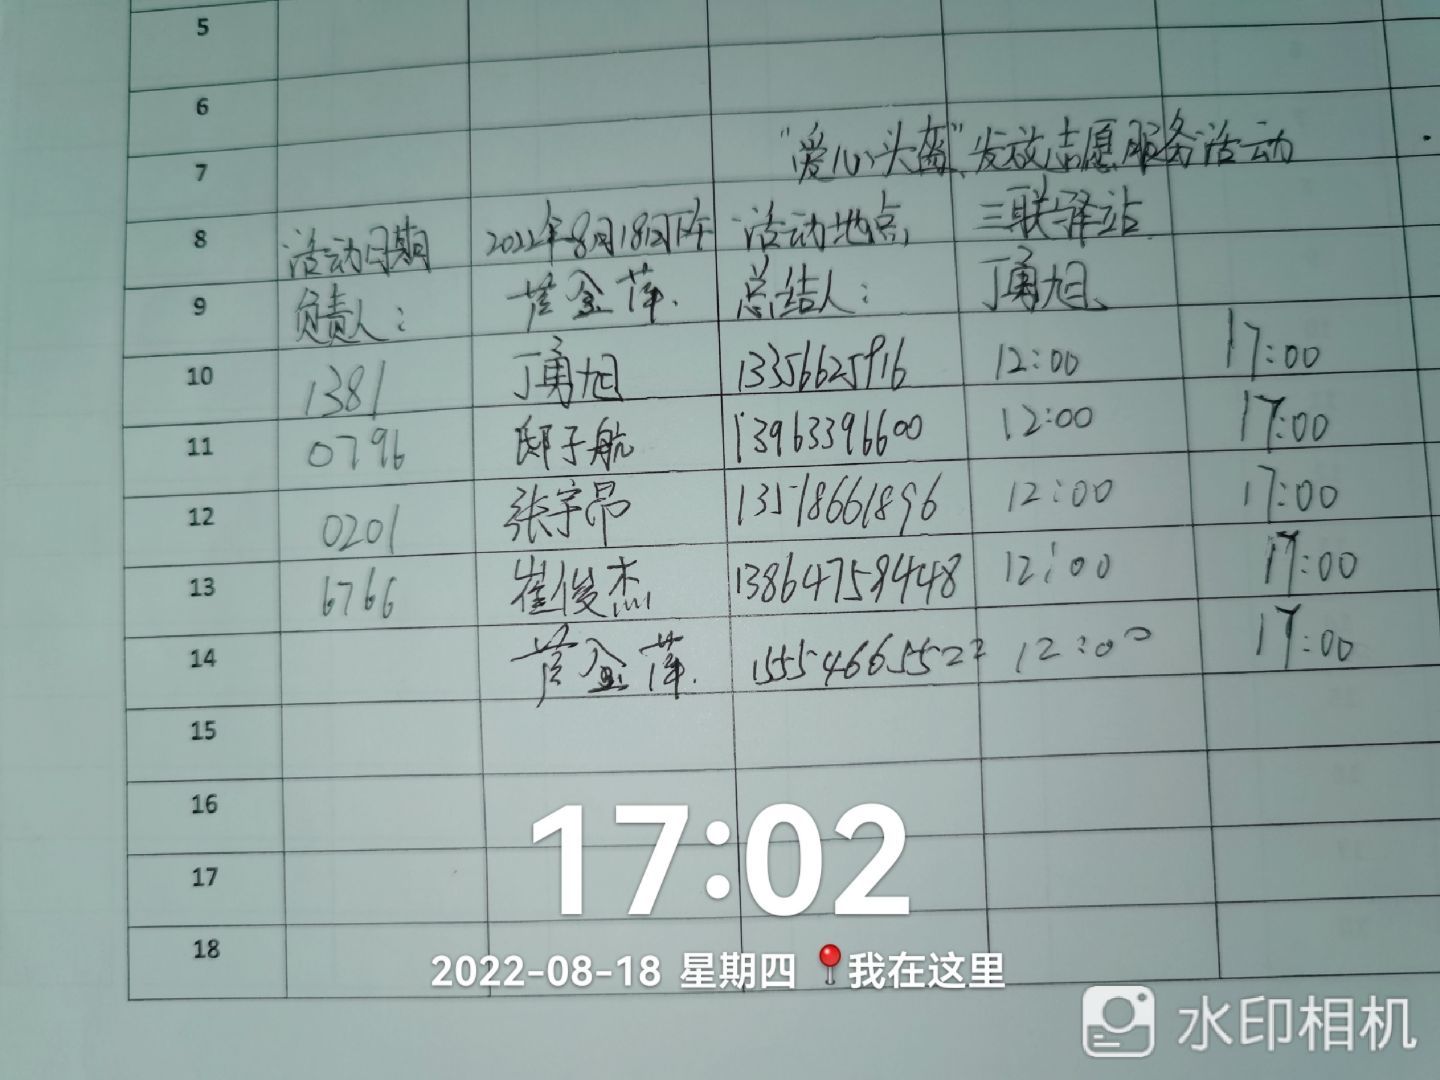 5
6
7 "爱心头盔"发放志愿服务活动
8 活动日期 2022年8月18日下午 活动地点 三联驿站
9 负责人: 黄金萍 总结人: 丁勇旭
10 1381 丁勇旭 13356625916 12:00 17:00
11 0796 邸子航 13963396600 12:00 17:00
12 0201 张宇昂 13518661896 12:00 17:00
13 6766 崔俊杰 13864759448 12:00 17:00
14 黄金萍 15554665522 12:00 17:00
15
16
17
18
17:02
2022-08-18 星期四 我在这里
水印相机